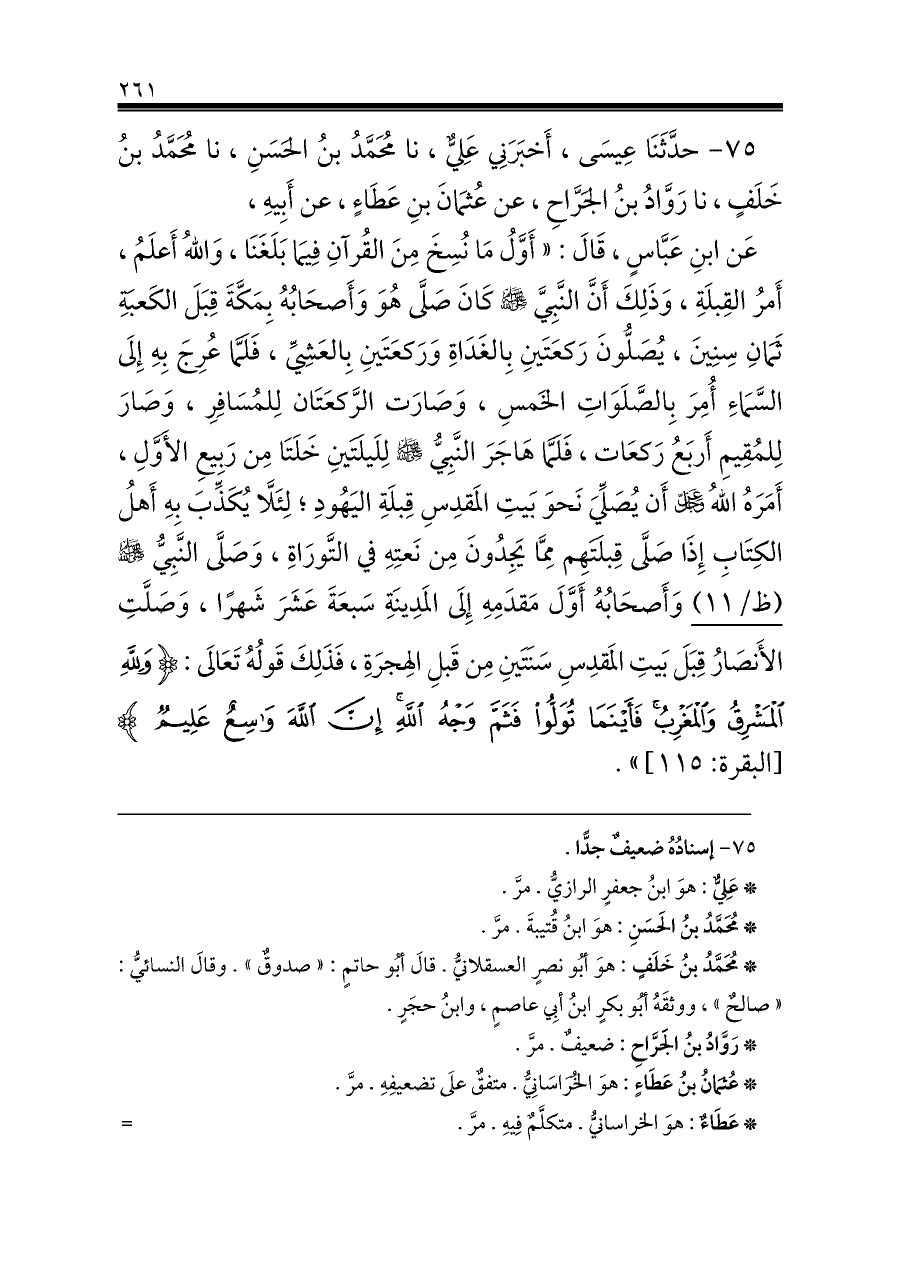 ٢٦١
٧٥- حدَّثَنَا عِيسَى ، أَخبَرَنِي عَلِيٌّ ، نا مُحَمَّدُ بنُ الحَسَنِ ، نا مُحَمَّدُ بنُ
خَلَفٍ ، نا رَوَّادُ بنُ الجَرَّاحِ ، عن عُثمَانَ بنِ عَطَاءٍ ، عن أَبِيهِ ،
عَن ابنِ عَبَّاسٍ ، قَالَ : « أَوَّلُ مَا نُسِخَ مِنَ القُرآنِ فِيمَا بَلَغَنَا ، وَاللهُ أَعلَمُ ،
أَمرُ القِبلَةِ ، وَذَلِكَ أَنَّ النَّبِيَّ ﷺ كَانَ صَلَّى هُوَ وَأَصحَابُهُ بِمَكَّةَ قِبَلَ الكَعبَةِ
ثَمَانِ سِنِينَ ، يُصَلُّونَ رَكعَتَينِ بِالغَدَاةِ وَرَكعَتَينِ بِالعَشِيِّ ، فَلَمَّا عُرِجَ بِهِ إِلَى
السَّمَاءِ أُمِرَ بِالصَّلَوَاتِ الخَمسِ ، وَصَارَت الرَّكعَتَان لِلمُسَافِرِ ، وَصَارَ
لِلمُقِيمِ أَربَعُ رَكعَات ، فَلَمَّا هَاجَرَ النَّبِيُّ ﷺ لِلَيلَتَينِ خَلَتَا مِن رَبِيعِ الأَوَّلِ ،
أَمَرَهُ اللهُ ﷿ أَن يُصَلِّيَ نَحوَ بَيتِ المَقدِسِ قِبلَةِ اليَهُودِ ؛ لِئَلَّا يُكَذِّبَ بِهِ أَهلُ
الكِتَابِ إِذَا صَلَّى قِبلَتَهِم مِمَّا يَجِدُونَ مِن نَعتِهِ فِي التَّورَاةِ ، وَصَلَّى النَّبِيُّ ﷺ
(ظ/ ١١) وَأَصحَابُهُ أَوَّلَ مَقدَمِهِ إِلَى المَدِينَةِ سَبعَةَ عَشَرَ شَهرًا ، وَصَلَّتِ
الأَنصَارُ قِبَلَ بَيتِ المَقدِسِ سَنَتَينِ مِن قَبلِ الهِجرَةِ ، فَذَلِكَ قَولُهُ تَعَالَى : ﴿ وَلِلَّهِ
ٱلۡمَشۡرِقُ وَٱلۡمَغۡرِبُۚ فَأَيۡنَمَا تُوَلُّواْ فَثَمَّ وَجۡهُ ٱللَّهِۚ إِنَّ ٱللَّهَ وَٰسِعٌ عَلِيمٌ ﴾
[البقرة: ١١٥] » .
٧٥- إسنادُهُ ضعيفٌ جدًّا .
* عَلِيٌّ : هوَ ابنُ جعفرٍ الرازيُّ . مرَّ .
* مُحَمَّدُ بنُ الحَسَنِ : هوَ ابنُ قُتيبةَ . مرَّ .
* مُحَمَّدُ بنُ خَلَفٍ : هوَ أبُو نصرٍ العسقلانيُّ . قالَ أبُو حاتمٍ : « صدوقٌ » . وقالَ النسائيُّ :
« صالحٌ » ، ووثقَهُ أبُو بكرٍ ابنُ أبِي عاصمٍ ، وابنُ حجَرٍ .
* رَوَّادُ بنُ الجَرَّاحِ : ضعيفٌ . مرَّ .
* عُثمَانُ بنُ عَطَاءٍ : هوَ الخُرَاسَانِيُّ . متفقٌ علَى تضعيفِهِ . مرَّ .
* عَطَاءٌ : هوَ الخراسانيُّ . متكلَّمٌ فِيهِ . مرَّ . =